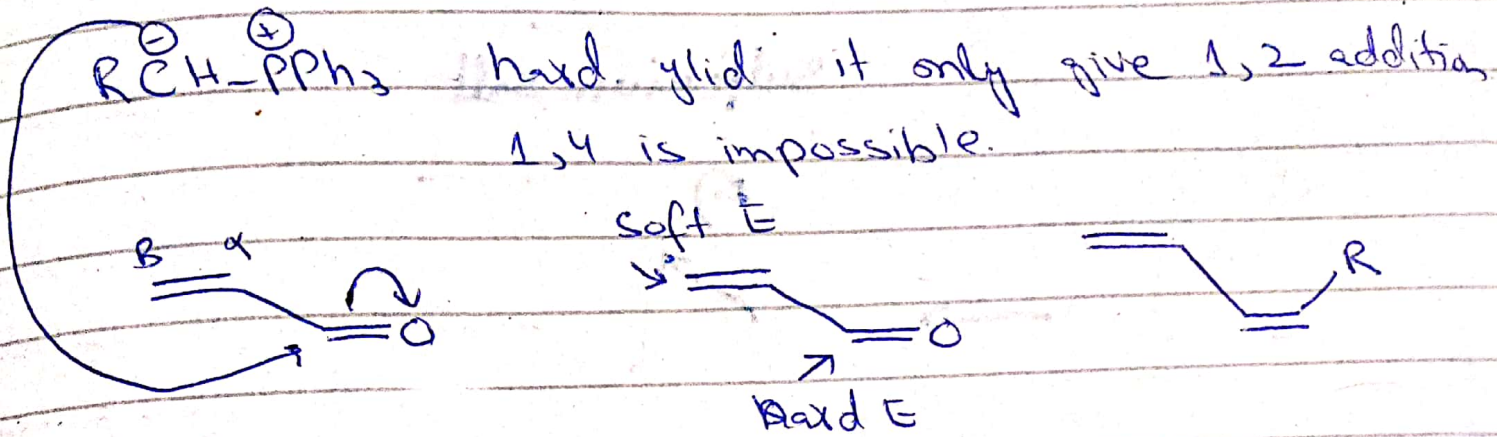 RC̄H-P⁺Ph₃ hard ylid it only give 1,2 addition
1,4 is impossible.
B α
O
soft E
O
Hard E
R